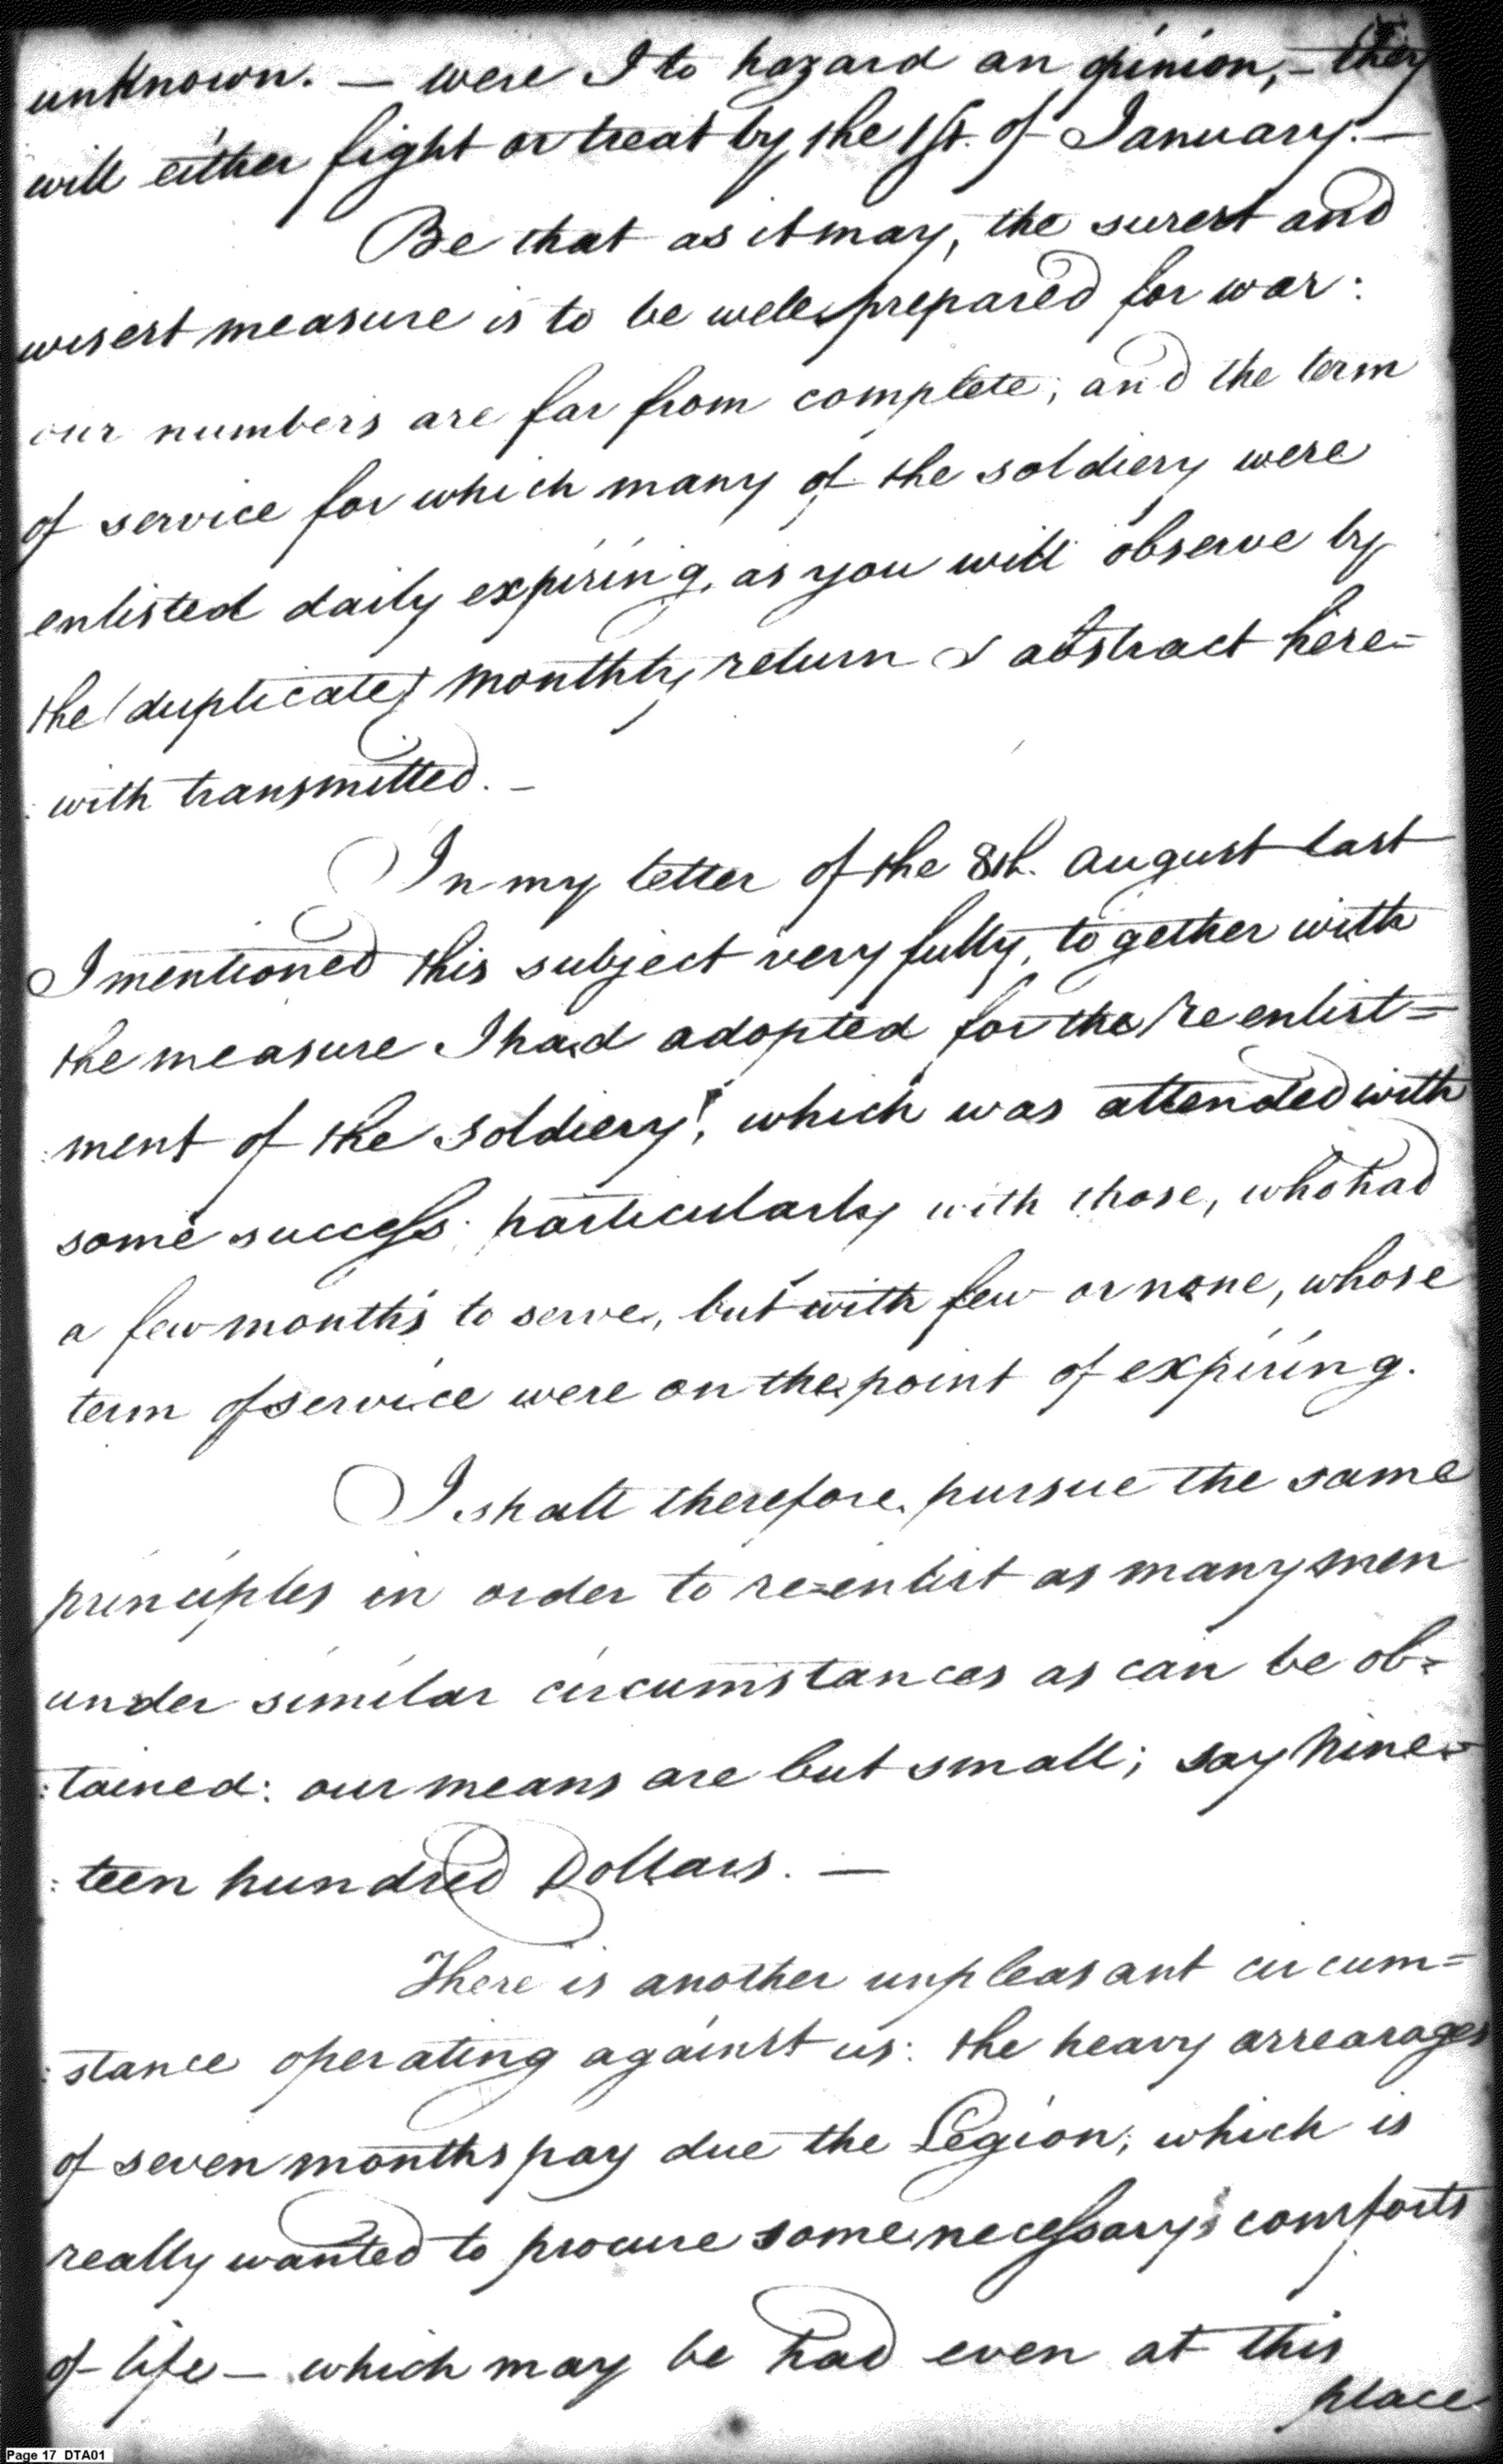 unknown. — were I to hazard an opinion, – they
will either fight or treat by the 1st. of January. —
Be that as it may, the surest and
wisest measure is to be well prepared for war:
our numbers are far from complete; and the term
of service for which many of the soldiery were
enlisted daily expiring, as you will observe by
the (duplicate) monthly return & abstract here=
:with transmitted. –
In my letter of the 8th. august last
I mentioned this subject very fully, together with
the measure I had adopted for the reenlist=
:ment of the soldiery, which was attended with
some success; particularly with those, who had
a few months to serve, but with few or none, whose
term of service were on the point of expiring.
I shall therefore pursue the same
principles in order to re=enlist as many men
under similar circumstances as can be ob=
:tained: our means are but small; say Nine=
:teen hundred Dollars. —
There is another unpleasant circum=
:stance operating against us: the heavy arrearages
of seven months pay due the Legion; which is
really wanted to procure some necessary comforts
of life — which may be had even at this
place
Page 17 DTA01